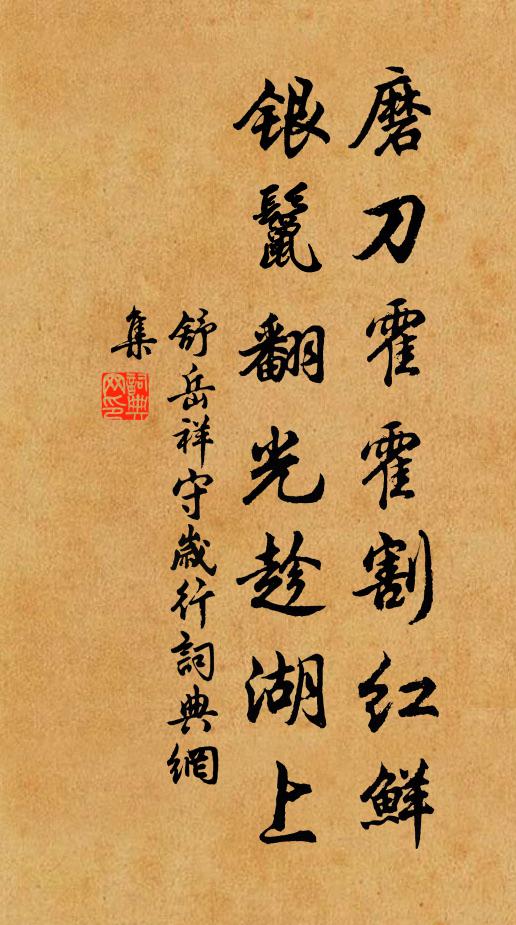 磨刀霍霍割红鲜
银鬣翻光趁湖上
舒岳祥守歲行詞典網
集
詞典
网印